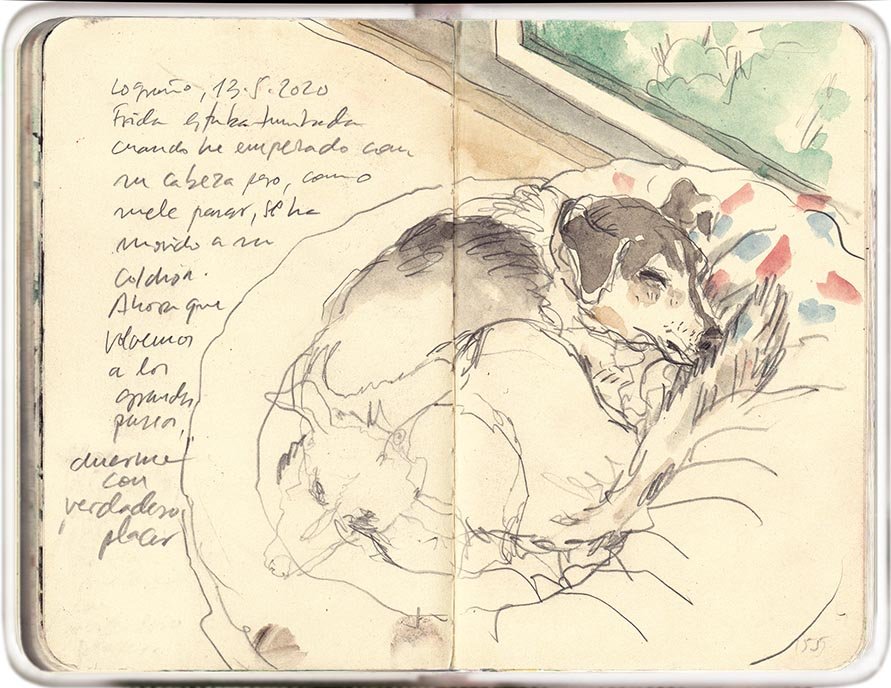 Logroño, 13.5.2020
Frida estaba tumbada
cuando he empezado con
su cabeza pero, como
suele pasar, se ha
movido a su
colchón.
Ahora que
volvemos
a los
grandes
paseos,
duerme
con
verdadero
placer